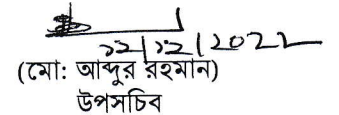 ১২/১২/২০২২
(মো: আব্দুর রহমান)
উপসচিব